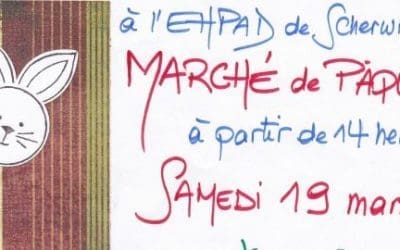 à l'EHPAD de Scherwi
MARCHÉ de PÂQU
à partir de 14 he
SAMEDI 19 mar